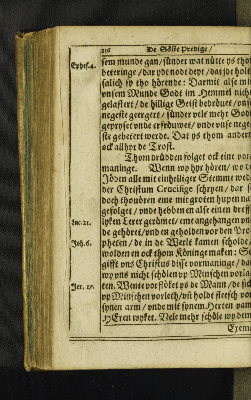 216 De Söste Predige /
Ephes. 4.
sem munde gan / sünder wat nütte ys tho
beteringe / dar ydt nodt deyt / dat ydt holt
salich sy tho hörende: Darmit alse mit
vnsem Munde Godt im Hemmel nicht
gelastert / de hillige Geist bedröuet / vn
negeste geergert / sünder vele mehr Godt
gepryset vnde erfröuwet / vnde vnse nege
ste gebetert werde. Dat ys thom andern
ock allhyr de Trost.
Thom drüdden folget ock eine vor
maninge. Wenn wy hyr hören / wo de
Jöden alle mit einhelliger Stemme wed
der Christum Crucifige schryen / dar se
doch thouören eme mit groten hupen na
gefolget / vnde hebben en alse einen dreff
Luc. 21.
lyken Lerer geerdnet / eme angehangen vn
de gehöret / vnde en geholden vor den Pro
Joh. 6.
pheten / de in de Werlt kamen scholde /
wolden en ock thom Köninge maken: So
gifft vns Christus disse vormaninge / dat
wy vns nicht schölen vp Minschen vorla
Jer. 17.
ten. Wente vorflöket ys de Mann / de sick
vp Minschen vorleth / vñ holdt fleesch vor
synen arm / vnde mit synem Herten vam
HEren wyket. Vele mehr schöle wy dem
Exem